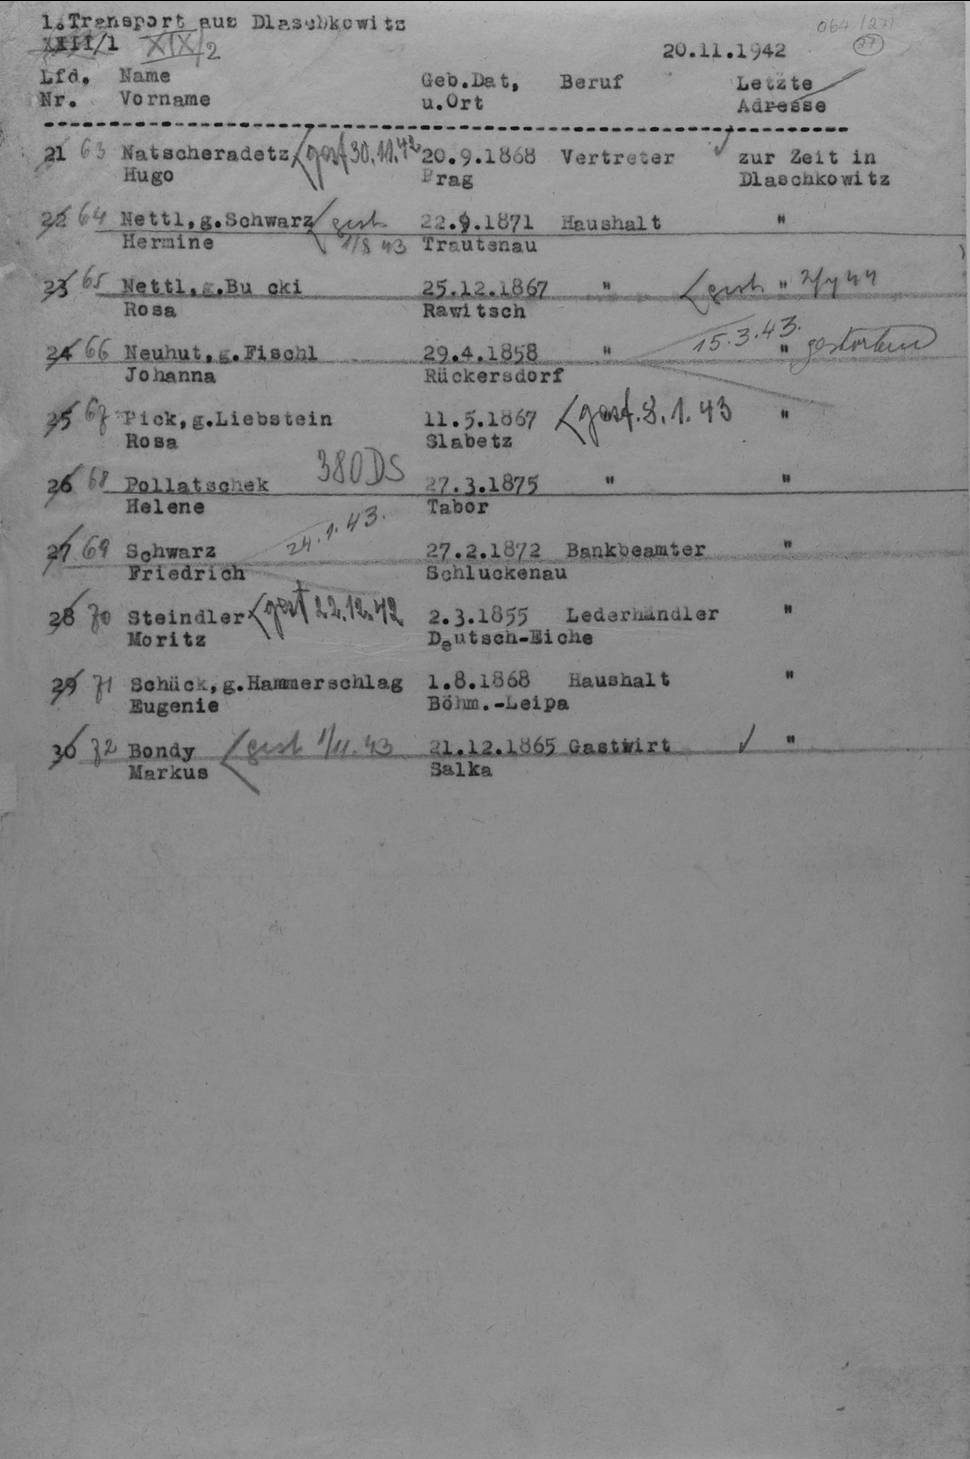 1.Transport aus Dlaschkowitz 064/27
XXIII/1 XIX/2 20.11.1942 27
Lfd. Name Geb.Dat, Beruf Letzte
Nr. Vorname u.Ort Adresse
21 63 Natscheradetz gest 30.11.42 20.9.1868 Vertreter zur Zeit in
Hugo Prag Dlaschkowitz
22 64 Nettl,g.Schwarz gest 22.9.1871 Haushalt "
Hermine 1/8 43 Trautenau
23 65 Nettl,g.Bu cki 25.12.1867 " gest "
Rosa Rawitsch
24 66 Neuhut,g.Fischl 29.4.1858 " 15.3.43. " gestorben
Johanna Rückersdorf
25 67 Pick,g.Liebstein 11.5.1867 gest. 8.1.43 "
Rosa Slabetz
26 68 Pollatschek 380DS 27.3.1875 " "
Helene Tabor
27 69 Schwarz 24.1.43. 27.2.1872 Bankbeamter "
Friedrich Schluckenau
28 70 Steindler gest 22.12.42 2.3.1855 Lederhändler "
Moritz Deutsch-Eiche
29 71 Schück,g.Hammerschlag 1.8.1868 Haushalt "
Eugenie Böhm.-Leipa
30 72 Bondy gest 1/11.43 21.12.1865 Gastwirt "
Markus Salka